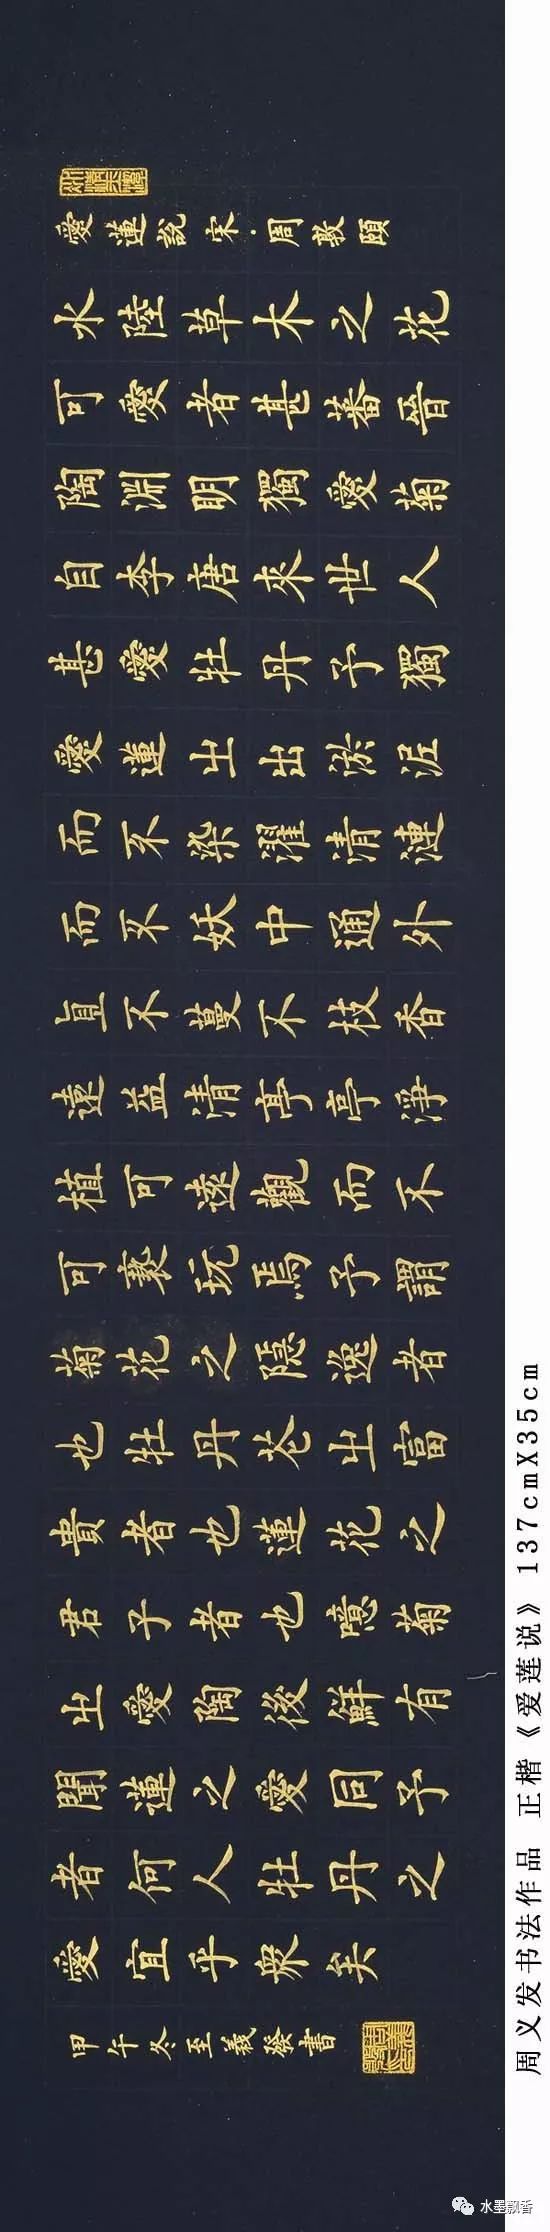 愛蓮說宋·周敦頤
水陸草木之花
可愛者甚蕃晉
陶淵明獨愛菊
自李唐來世人
甚愛牡丹予獨
愛蓮之出淤泥
而不染濯清漣
而不妖中通外
直不蔓不枝香
遠益清亭亭淨
植可遠觀而不
可褻玩焉予謂
菊花之隱逸者
也牡丹花之富
貴者也蓮花之
君子者也噫菊
之愛陶後鮮有
聞蓮之愛同予
者何人牡丹之
愛宜乎衆矣
甲午冬至義發書
周义发书法作品 正楷《爱莲说》 137cmX35cm
水墨飘香